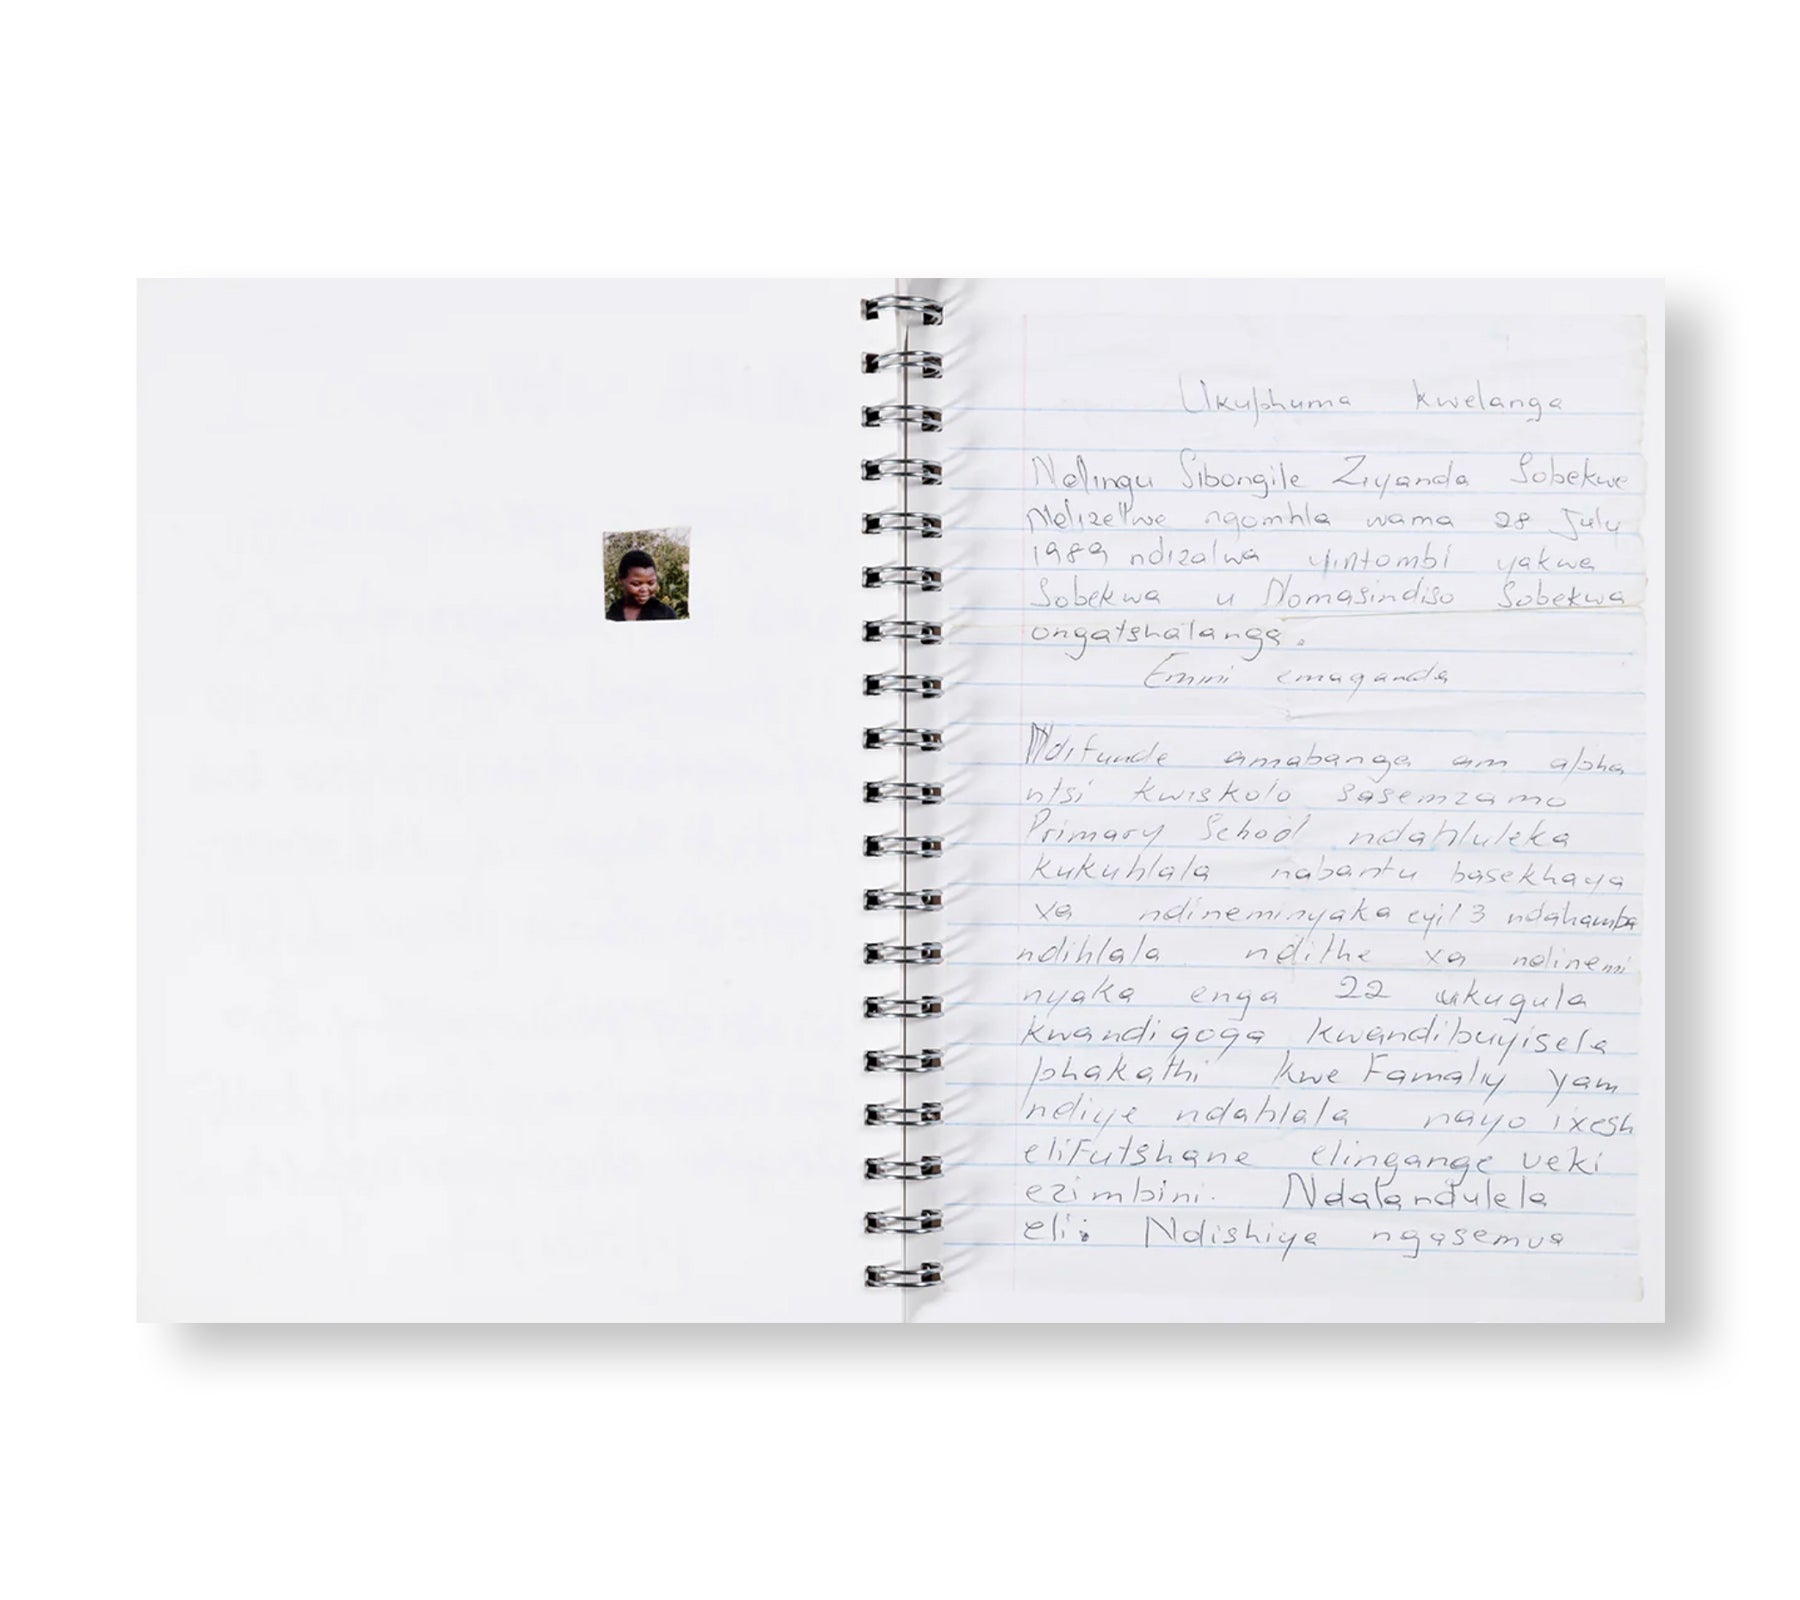 Ukuphuma kwelanga
Ndingu Sibongile Ziyanda Sobekwe
Ndizelwe ngomhla wama 28 July
1989 ndizalwa yintombi yakwa
Sobekwa u Nomasindiso Sobekwa
ongatshatanga.
Emini emaqanda
Ndifunde amabanga am apha
ntsi kwiskolo sasemzamo
Primary School ndahluleka
kukuhlala nabantu basekhaya
xa ndineminyaka eyi13 ndahamba
ndihlala ndithe xa ndinemi
nyaka enga 22 ukugula
kwandigoqa kwandibuyisela
phakathi kwe Famaliy yam
ndiye ndahlala nayo ixesh
elifutshane elingange veki
ezimbini. Ndalandulela
eli: Ndishiya ngasemva